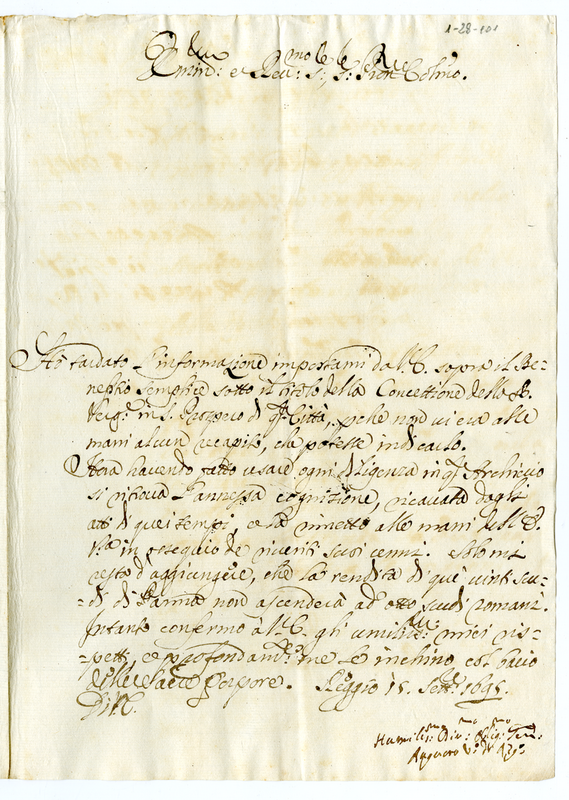 1-28-101
Emin: e Rev: S:, S: Pron Colmo.
Hò tardato l'informazione impostami da V. E. sopra il Be-
neficio semplice sotto il titolo della Concettione della B.
Verg: in S. Prospero di q.ta Città, perche non vi era alle
mani alcun recapito, che potesse indicarlo.
Hora havendo fatto usare ogni diligenza in q.to Archivio
si ritrova l'annessa cognizione, ricavata dagli
atti di quei tempi, e la rimetto alle mani dell' E.
V.ra in ossequio de riveriti suoi cenni. Solo mi
resta d'aggiungere, che la rendita di que' vinti scu-
=di di Parma non ascenderà ad otto scudi romani.
Intanto confermo à V. E. gli umiliss: miei ris-
=petti, e profondam.te me le inchino, e bacio
delle Sacre Porpore. Reggio 15. Sett.e 1695.
Di V. E.
Humiliss: Div: Oblig: Ser: